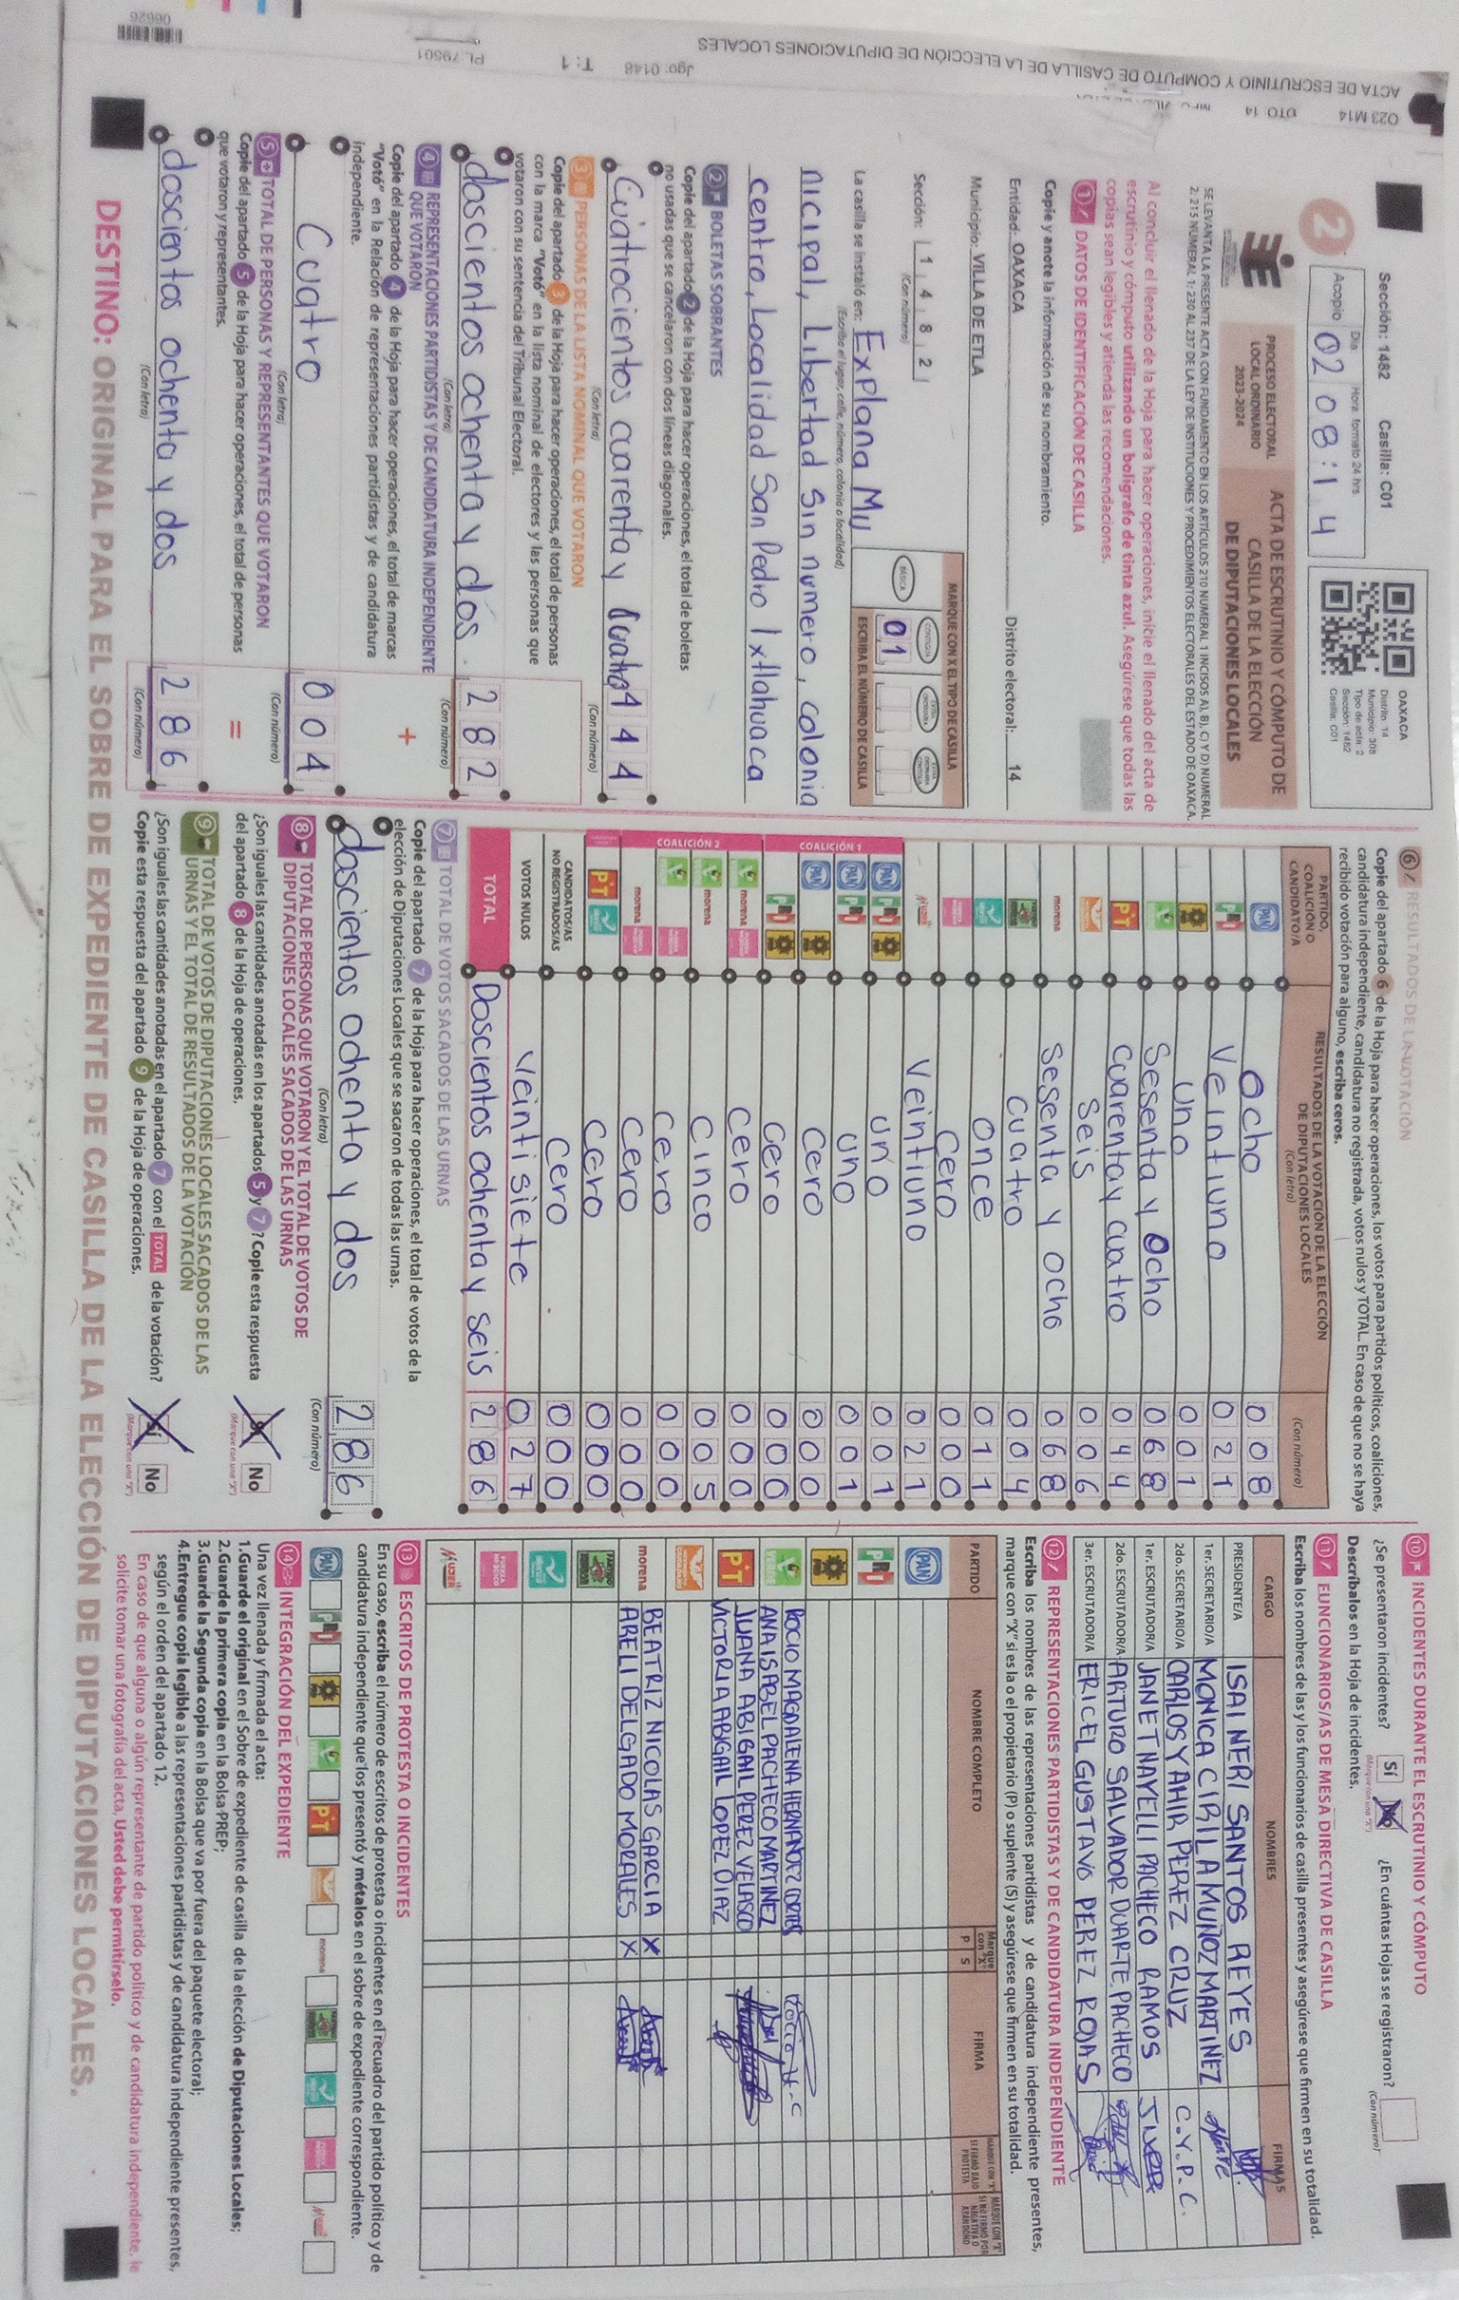 Sección: 1482 Casilla: C01
2
Día Hora: formato 24 hrs
Acopio 02 08:14
OAXACA
Distrito: 14
Municipio: 308
Tipo de acta: 2
Sección: 1482
Casilla: C01
PROCESO ELECTORAL
LOCAL ORDINARIO
2023-2024
ACTA DE ESCRUTINIO Y CÓMPUTO DE
CASILLA DE LA ELECCIÓN
DE DIPUTACIONES LOCALES
SE LEVANTA LA PRESENTE ACTA CON FUNDAMENTO EN LOS ARTÍCULOS 210 NUMERAL 1 INCISOS A), B), C) Y D) NUMERAL
2; 215 NUMERAL 1; 230 AL 237 DE LA LEY DE INSTITUCIONES Y PROCEDIMIENTOS ELECTORALES DEL ESTADO DE OAXACA.
Al concluir el llenado de la Hoja para hacer operaciones, inicie el llenado del acta de
escrutinio y cómputo utilizando un bolígrafo de tinta azul. Asegúrese que todas las
copias sean legibles y atienda las recomendaciones.
1 DATOS DE IDENTIFICACIÓN DE CASILLA
Copie y anote la información de su nombramiento.
Entidad: OAXACA Distrito electoral: 14
Municipio: VILLA DE ETLA
Sección: 1 4 8 2
(Con número)
MARQUE CON X EL TIPO DE CASILLA
BÁSICA
ESCRIBA EL NÚMERO DE CASILLA
01
La casilla se instaló en: Explana Mu
(Escriba el lugar, calle, número, colonia o localidad)
nicipal, Libertad Sin numero, colonia
centro, Localidad San Pedro Ixtlahuaca
2 BOLETAS SOBRANTES
Copie del apartado 2 de la Hoja para hacer operaciones, el total de boletas
no usadas que se cancelaron con dos líneas diagonales.
Cuatrocientos cuarenta y cuatro 4 4 4
(Con letra) (Con número)
3 PERSONAS DE LA LISTA NOMINAL QUE VOTARON
Copie del apartado 3 de la Hoja para hacer operaciones, el total de personas
con la marca "Votó" en la lista nominal de electores y las personas que
votaron con su sentencia del Tribunal Electoral.
doscientos ochenta y dos. 2 8 2
(Con letra) (Con número)
4 REPRESENTACIONES PARTIDISTAS Y DE CANDIDATURA INDEPENDIENTE
QUE VOTARON
Copie del apartado 4 de la Hoja para hacer operaciones, el total de marcas
"Votó" en la Relación de representaciones partidistas y de candidatura
independiente.
+
Cuatro 0 0 4
(Con letra) (Con número)
5 TOTAL DE PERSONAS Y REPRESENTANTES QUE VOTARON
Copie del apartado 5 de la Hoja para hacer operaciones, el total de personas
que votaron y representantes.
=
doscientos ochenta y dos 2 8 6
(Con letra) (Con número)
6 RESULTADOS DE LA VOTACIÓN
Copie del apartado 6 de la Hoja para hacer operaciones, los votos para partidos políticos, coaliciones,
candidatura independiente, candidatura no registrada, votos nulos y TOTAL. En caso de que no se haya
recibido votación para alguno, escriba ceros.
PARTIDO,
COALICIÓN O
CANDIDATO/A
RESULTADOS DE LA VOTACIÓN DE LA ELECCIÓN
DE DIPUTACIONES LOCALES
(Con letra) (Con número)
PAN Ocho 0 0 8
PRI Veintiuno 0 2 1
Uno 0 0 1
Sesenta y Ocho 0 6 8
PT Cuarenta y cuatro 0 4 4
Seis 0 0 6
morena Sesenta y ocho 0 6 8
cuatro 0 0 4
Once 0 1 1
Cero 0 0 0
Veintiuno 0 2 1
COALICIÓN 1
PAN PRI uno 0 0 1
PAN PRI uno 0 0 1
PAN Cero 0 0 0
PRI Cero 0 0 0
COALICIÓN 2
morena Cero 0 0 0
morena Cinco 0 0 5
Cero 0 0 0
morena Cero 0 0 0
PT Cero 0 0 0
CANDIDATOS/AS
NO REGISTRADOS/AS Cero 0 0 0
VOTOS NULOS Veintisiete 0 2 7
TOTAL Doscientos ochenta y seis 2 8 6
7 TOTAL DE VOTOS SACADOS DE LAS URNAS
Copie del apartado 7 de la Hoja para hacer operaciones, el total de votos de la
elección de Diputaciones Locales que se sacaron de todas las urnas.
doscientos ochenta y dos 2 8 6
(Con letra) (Con número)
8 TOTAL DE PERSONAS QUE VOTARON Y EL TOTAL DE VOTOS DE
DIPUTACIONES LOCALES SACADOS DE LAS URNAS
¿Son iguales las cantidades anotadas en los apartados 5 y 7? Copie esta respuesta
del apartado 8 de la Hoja de operaciones.
Sí No
(Marque con una "X")
9 TOTAL DE VOTOS DE DIPUTACIONES LOCALES SACADOS DE LAS
URNAS Y EL TOTAL DE RESULTADOS DE LA VOTACIÓN
¿Son iguales las cantidades anotadas en el apartado 7 con el TOTAL de la votación?
Copie esta respuesta del apartado 9 de la Hoja de operaciones.
Sí No
(Marque con una "X")
10 INCIDENTES DURANTE EL ESCRUTINIO Y CÓMPUTO
¿Se presentaron incidentes? Sí No ¿En cuántas Hojas se registraron?
(Marque con una "X") (Con número)
Descríbalos en la Hoja de incidentes.
11 FUNCIONARIOS/AS DE MESA DIRECTIVA DE CASILLA
Escriba los nombres de las y los funcionarios de casilla presentes y asegúrese que firmen en su totalidad.
CARGO NOMBRES FIRMAS
PRESIDENTE/A ISAI NERI SANTOS REYES
1er. SECRETARIO/A MONICA CIRILA MUÑOZ MARTINEZ
2do. SECRETARIO/A CARLOS YAHIR PEREZ CRUZ C.Y.P.C.
1er. ESCRUTADOR/A JANET NAYELLI PACHECO RAMOS
2do. ESCRUTADOR/A ARTURO SALVADOR DUARTE PACHECO
3er. ESCRUTADOR/A ERICEL GUSTAVO PEREZ ROJAS
12 REPRESENTACIONES PARTIDISTAS Y DE CANDIDATURA INDEPENDIENTE
Escriba los nombres de las representaciones partidistas y de candidatura independiente presentes,
marque con "X" si es la o el propietario (P) o suplente (S) y asegúrese que firmen en su totalidad.
PARTIDO NOMBRE COMPLETO Marque con "X" P S FIRMA
MARQUE CON "X" SI FIRMÓ BAJO PROTESTA
PAN
PRI
ROCIO MAGDALENA HERNANDEZ CORTES
ANA ISABEL PACHECO MARTINEZ
PT JUANA ABIGAIL PEREZ VELASCO
VICTORIA ABIGAIL LOPEZ DIAZ
morena BEATRIZ NICOLAS GARCIA X
ARELI DELGADO MORALES X
13 ESCRITOS DE PROTESTA O INCIDENTES
En su caso, escriba el número de escritos de protesta o incidentes en el recuadro del partido político y de
candidatura independiente que los presentó y métalos en el sobre de expediente correspondiente.
PAN PRI PT morena
14 INTEGRACIÓN DEL EXPEDIENTE
Una vez llenada y firmada el acta:
1.Guarde el original en el Sobre de expediente de casilla de la elección de Diputaciones Locales;
2.Guarde la primera copia en la Bolsa PREP;
3.Guarde la Segunda copia en la Bolsa que va por fuera del paquete electoral;
4.Entregue copia legible a las representaciones partidistas y de candidatura independiente presentes,
según el orden del apartado 12.
En caso de que alguna o algún representante de partido político y de candidatura independiente, le
solicite tomar una fotografía del acta, Usted debe permitírselo.
DESTINO: ORIGINAL PARA EL SOBRE DE EXPEDIENTE DE CASILLA DE LA ELECCIÓN DE DIPUTACIONES LOCALES.
O23 M14 DTO 14
ACTA DE ESCRUTINIO Y COMPUTO DE CASILLA DE LA ELECCIÓN DE DIPUTACIONES LOCALES
Jgo: 0148 T: 1 PL 79501
06626